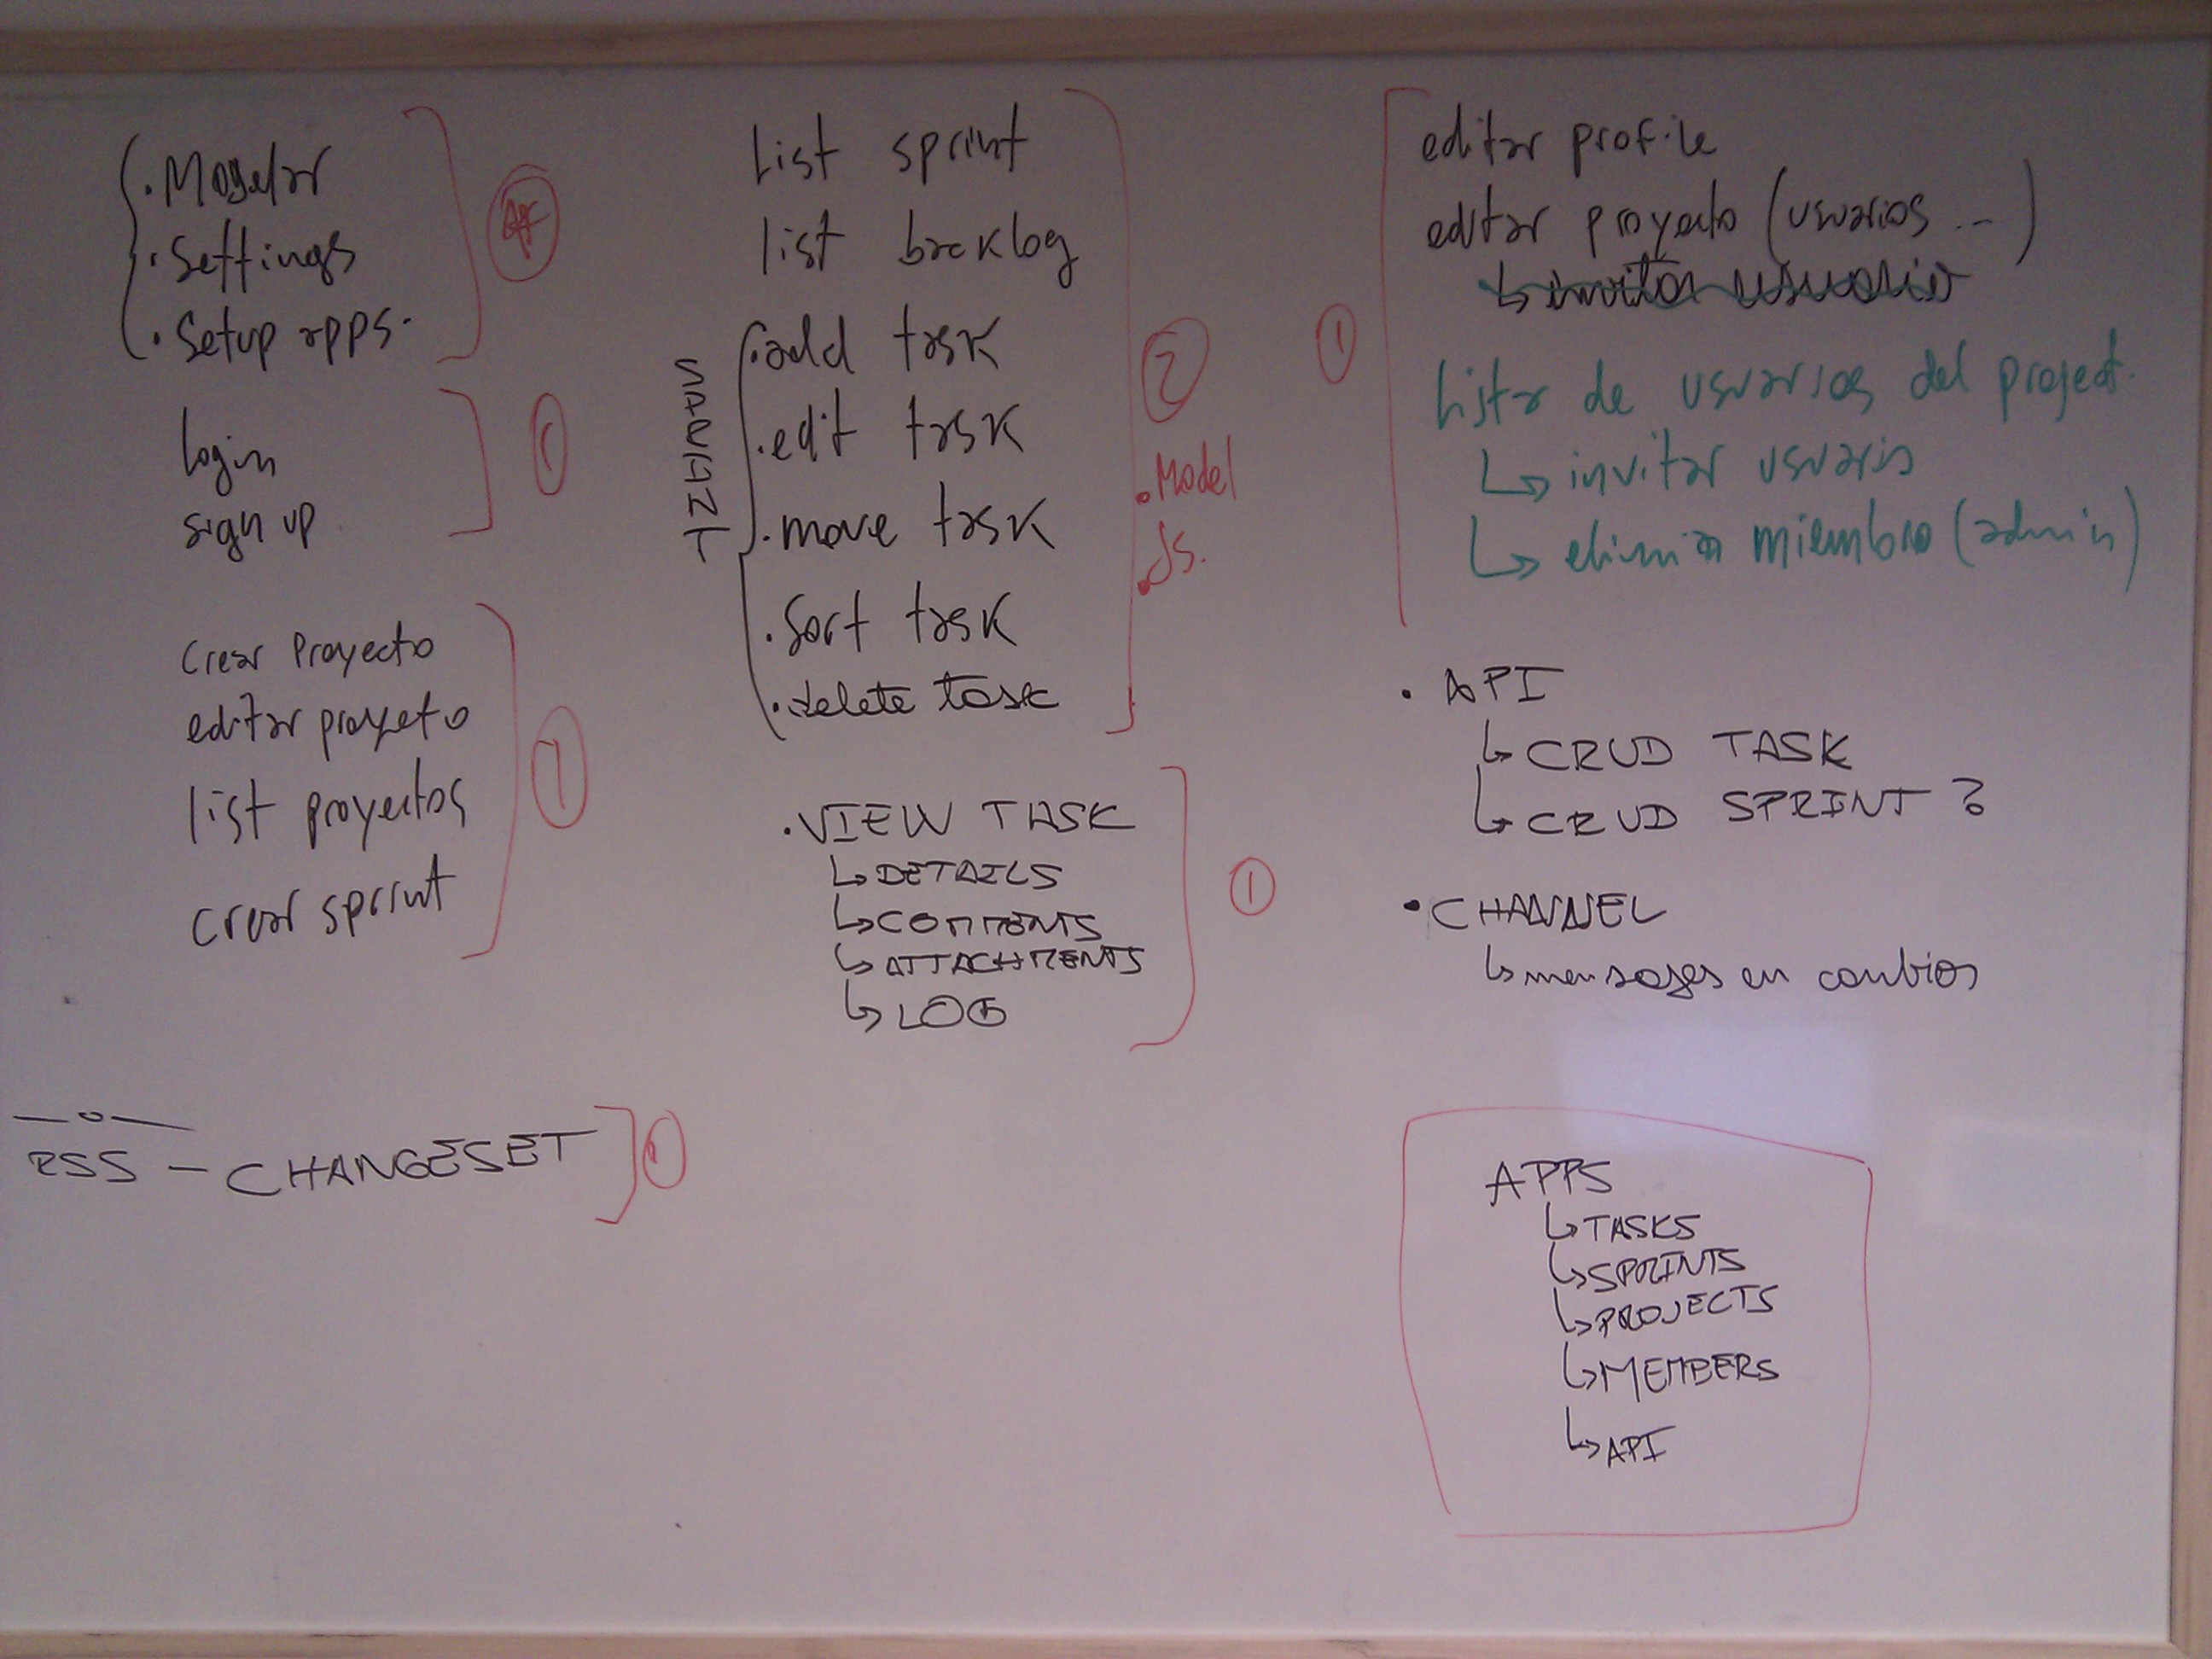 · Settings
· Setup apps.
login
sign up
①
crear Proyecto
editar proyecto
list proyectos
crear sprint
①
RSS - CHANGESET
①
list sprint
list backlog
· add task
· edit task
· move task
· Sort task
· delete task
②
· Model
· JS.
· VIEW TASK
↳ DETAILS
↳ COMMENTS
↳ ATTACHMENTS
↳ LOG
①
①
editar profile
editar proyecto (usuarios ...)
↳ invitar usuario
Listar de usuarios del project.
↳ invitar usuario
↳ eliminar miembro (admin)
· API
↳ CRUD TASK
↳ CRUD SPRINT ?
· CHANNEL
↳ mensajes en cambios
APPS
↳ TASKS
↳ SPRINTS
↳ PROJECTS
↳ MEMBERS
↳ API